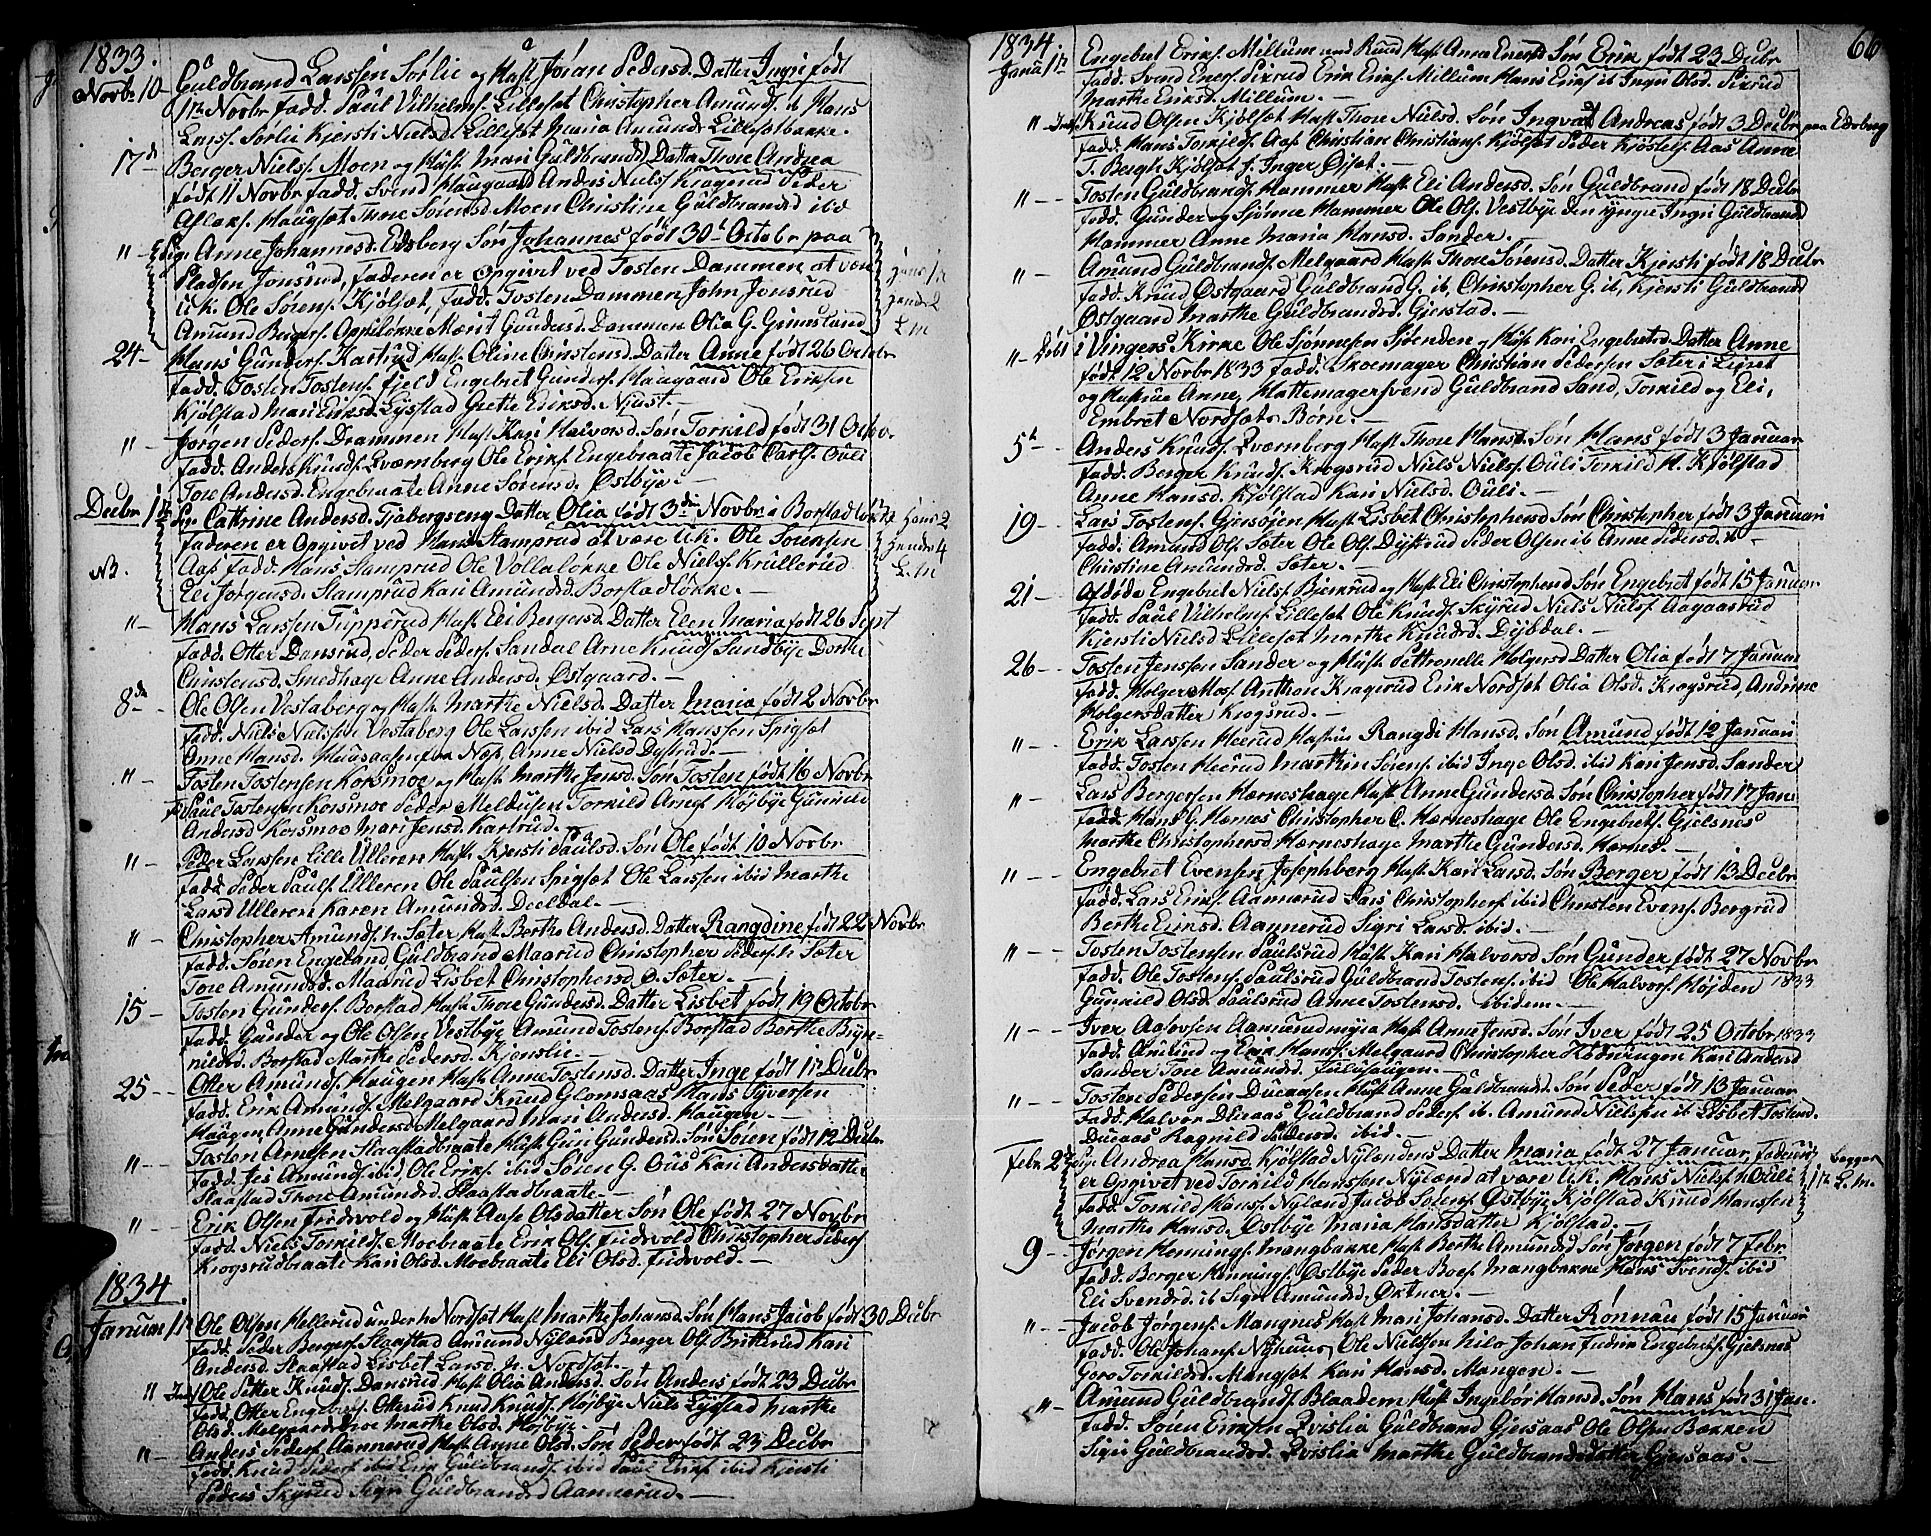 1833.
Novbr 10 Guldbrand Larssen Sørlie og Hust Jøran Pedersd. Datter Ingri født
1ste Novbr fadd. Paul Vilhelms. Lillesæt Christopher Amunds. ib Hans
Larss. Sørlie Kjersti Nielsd Lillesæt Maria Amunds Lillesætbakke.
17d - Berger Niels. Moen og Hust Mari Guldbrandsd Datter Thore Andrea
født 11 Novbr fadd. Svend Haugaard Anders Niels Kragerud Peder
Aslaks. Haugsæt Thore Sørensd Moen Christine Guldbrandsd ibd
" - Pig. Anne Johannesd. Edsberg Søn Johannes født 30t Octobr paa
Pladsen Jonsrud, faderen er opgivet ved Tosten Dammen at være
U.K. Ole Sørens. Kjølsæt, fadd. Tosten Dammen, John Jonsrud
Amund Bergers. Opsæløkke Mærit Gunders. Dammen Olia G. Grimsland
24 - Hans Gunders. Kartrud Hust Oline Christensd. Datter Anne født 26 Octobr
fadd. Tosten Tostens. Fjeld Engebret Gunders. Haugaard Ole Eriksen
Kjølstad Mari Eriksd. Lystad Grethe Eriksd. Njust.
" - Jørgen Peders. Drammen Hust Kari Halvorsd. Søn Torkild født 31 Octo.
fadd. Anders Knuds. Qværnberg Ole Eriks. Engebraate Jacob Carls. Ouli
Tore Andersd. Engebraate Anne Sørensd. Østbye.
Decbr 1ste Pig. Cathrine Andersd. Tjabergseng Datter Olia født 3de Novbr i Borstadløkke
faderen er opgivet ved Hans Stamprud at være U.K. Ole Sørensen
NB. Aas fadd. Hans Stamprud Ole Volleløkke Ole Niels. Krullerud
Eli Jørgensd. Stamprud Kari Amundsd. Borstadløkke.
" - Hans Larssen Tupperud Hust Eli Bergersd. Datter Elen Maria født 26 Sept
fadd. Otter Dansrud, Peder Peders. Sandal Arne Knuds Sundbye Dorthe
Christensd. Smedhage Anne Andersd. Østgaard.
8de - Ole Olsen Vestaberg og Hust Marthe Nielsd. Datter Maria født 2 Novbr
fadd. Niels Nielssen Vestaberg Ole Larssen ibid Lars Hanssen Spigset
Anne Hansd. Huusaasen fra Næs, Anne Nielsd Dystrud.
" - Tosten Tostensen Korsmoe og Hust Marthe Jensd. Søn Tosten født 16 Novbr
F. Paul Tostensen Korsmoe Peder Meldusen Torkild Arnes Højbye Gunnild
Andersd Korsmoe Mari Jensd. Kartrud.
" - Peder Larssen Lille Ulleren Hust Kjersti Paulsd. Søn Ole født 10 Novbr
fadd. Peder Pauls. Ulleren Ole Paulsen Spigset Ole Larssen ibid Marthe
Larsd Ulleren Karen Amundsd. Deeldal.
" - Christopher Amunds. n. Sæter Hust Berthe Andersd. Datter Rangdine født 22 Novbr
fadd. Søren Engeland Guldbrand Maarud Christopher Peders. h Sæter
Tore Amundsd. Maarud Lisbet Christophersd ø. Sæter.
15 - Tosten Gunders. Borstad Hust Thore Gundersd. Datter Lisbet født 19 Octobr
fadd. Gunder og Ole Olsen Vestbye Amund Tostens. Borstad Berthe Bryn-
nildsd. Borstad Marthe Pedersd. Kjenslie.
25 - Otter Amunds. Haugen Hust Anne Tostensd. Datter Inge født 1ste Decbr
fadd. Erik Amunds. Melgaard Knud Glomsaas Hans Syversen
Haugen, Anne Gundersd Melgaard Mari Andersd. Haugen.
" - Tosten Arnesen Slaastadbraate Hust Gun Gundersd. Søn Søren født 12 Decbr
fadd. Jes Amunds. ibid, Ole Eriks. ibid Søren G. Ous Kari Andersdatter
Slaastad Thore Amundsd Slaastadbraate.
" - Erik Olsen Fridvold og Hust Aase Olsdatter Søn Ole født 27 Novbr
fadd. Niels Torkilds. Moebraate Erik Ols. Fridvold Christopher Peders
Krogsrudbraate Kari Olsd. Moebraate Eli Olsd. Fridvold.
1834.
Januar 1ste Ole Olsen Hellerud under h Nordset Hust Marthe Johansd. Søn Hans Jacob født 30 Decbr
fadd. Peder Bergers. Slaastad Amund Nyland Berger Ols. Britterud Kari
Andersd. Slaastad Lisbet Larsd. h. Nordset.
" Ind. Ole Petter Knuds. Dansrud Hust Olia Andersd. Søn Anders født 23 Decbr
fadd. Otter Engebrets. Otterud Knud Knuds. Højbye Niels Lystad Marthe
Olsd. Melgaard Marthe Olsd. Højbye.
" - Anders Peders. Aannerud Hust Anne Olsd. Søn Peder født 23 Decbr
fadd. Knud Peders. ibid Erik Guldbrands. ibid Paul Eriks. ibid Kjersti
Peders Skyrud Sigri Guldbrandsd Aannerud.
1834 66
Janu 1ste Engebret Eriks. Millum und Ruud Hust Anna Enersd Søn Erik født 23 Decbr
fadd. Svend Eners. Sixrud Erik Eriks. Millum Hans Eriks ib Ingri Olsd. Sixrud
Marthe Eriksd. Millum.
" Ind. Knud Olsen Kjølset Hust Thore Nielsd. Søn Ingvat Andreas født 3 Decbr paa Edsberg
fadd. Hans Torkilds. Aas Christian Christians. Kjølset Peder Kjøstels. Aas Anne
T. Bergh Kjølset J. Inger Øiset.
" - Tosten Guldbrands. Hammer Hust Eli Andersd. Søn Guldbrand født 18 Decbr
fadd. Gunder og Sjønne Hammer Ole Ols. Vestbye den yngre Ingri Guldbrandsd
Hammer Anne Maria Hansd. Sander.
" - Amund Guldbrands. Melgaard Hust Thore Sørensd. Datter Kjersti født 18 Decbr
fadd. Knud Østgaard Guldbrand G. ib, Christopher G. ib, Kjersti Guldbrandsd
Østgaard Marthe Guldbrandsd. Gjerstad.
" - Døbt i Vingers Kirke Ole Sjønnesen Sjønden og Hust Kari Engebretsd. Datter Anne
født 12 Novbr 1833 fadd. Skoemager Christian Pedersen Sæter i Lejret
og Hustrue Anne, Hattemagersvend Guldbrand Sand, Torkild og Eli,
Embret Nordsets Børn.
5t - Anders Knuds. Qværnberg Hust Thore Hansd. Søn Hans født 3 Januar
fadd. Berger Knuds. Krogsrud Niels Niels. Ouli Torkild H. Kjølstad
Anne Hansd. Kjølstad Kari Nielsd. Ouli.
19 - Lars Tostens. Gjersøjen Hust Lisbet Christophersd Søn Christopher født 3 Januari
fadd. Amund Ols. Sæter Ole Ols. Dystrud Peder Olsen ib Anne Pedersd. ib
Christine Amundsd. Sæter.
21 - Afdøde Engebret Niels. Bjerkrud og Hust Eli Christophersd Søn Engebret født 15 Januar
fadd. Paul Vilhelms. Lillesæt Ole Knuds. Skyrud Niels Niels. Aagaasrud
Kjersti Nielsd Lillesæt Marthe Knudsd. Dybdal.
26 - Tosten Jenssen Sander og Hust Pettronelle Holgersd Datter Olia født 7 Januar
fadd. Holger Moss. Anthon Kragerud Erik Nordset Olia Olsd. Krogsrud, Andrine
Holgersdatter Krogsrud.
" - Erik Larssen Heerud Hustrue Rangdi Hansd. Søn Amund født 12 Januari
fadd. Tosten Heerud Marthin Sørens. ibid Inge Olsd. ibid Kari Jensd. Sander
" - Lars Bergersen Hærneshage Hust Anne Gundersd. Søn Christopher født 17 Jani
fadd. Hans G. Hærnes Christopher C. Hærneshage Ole Engebrets. Gjelsnes
Marthe Christophersd Hærneshage Marthe Gundersd. Hærnes.
" - Engebret Evensen Josephberg Hust Kari Larsd. Søn Berger født 13 Decbr
fadd. Lars Eriks. Aannerud Lars Christophers. ibid Christen Evens. Bergrud
Berthe Eriksd. Aannerud Sigri Larsd. ibid.
" - Tosten Tostensen Paulsrud Hust Kari Halvorsd Søn Gunder født 27 Novbr
fadd. Ole Tostens. Paulsrud Guldbrand Tostens. ibid Ole Halvors. Højden 1833
Gunnild Olsd. Paulsrud Anne Tostensd. ibidem.
" - Iver Aslovsen Aamurudmyra Hust Anne Jensd. Søn Iver født 25 Octobr 1833
fadd. Amund og Erik Hans. Melgaard Christopher Kødningen Kari Andersd
Sander Tore Amundsd. Julihaugen.
" - Tosten Pedersen Dueaasen Hust Anne Guldbrandsd. Søn Peder født 13 Januar
fadd. Halvor Dueaas, Guldbrand Peders. ib. Amund Nielsen ib Lisbet Tostensd.
Dueaas Ragnild Pedersd. ibid.
Febr. 2den Pige Andrea Hansd. Kjølstad Nylandens Datter Maria født 27 Januar, faderen begges
er opgivet ved Torkild Hanssen Nylænd at være U.K. Hans Niels. h Ouli 1ste L.M.
fadd. Torkild Hans. Nyland Jacob Sørens. Østbye, Kjølstad Knud Hanssen
Marthe Hansd. Østbye Maria Hansdatter Kjølstad.
9 - Jørgen Hennings. Mangbakke Hust Berthe Amundsd Søn Jørgen født 7 Febr
fadd. Berger Hennings. Østbye Peder Boes. Mangbakke Hans Svends. ibid
Eli Svendsd. ib Sigri Amundsd. Øktner.
" - Jacob Jørgens. Mangnes Hust Mari Johansd. Datter Rønnau født 15 Januar
fadd. Ole Johans. Nyhuus, Ole Nielssen Milo Johan Fredrik Engebrets. Gjelsnes
Goro Torkildsd. Mangset Kari Hansd. Mangen.
" - Amund Guldbrands. Blaadern Hust Ingebør Hansd. Søn Hans født 31 Jan.
fadd. Søren Eriksen Qvislia Guldbrand Gjersaas Ole Olsen Bekken
Sigri Guldbrandsd. Qvislia Marthe Guldbrandsdatter Gjersaas.